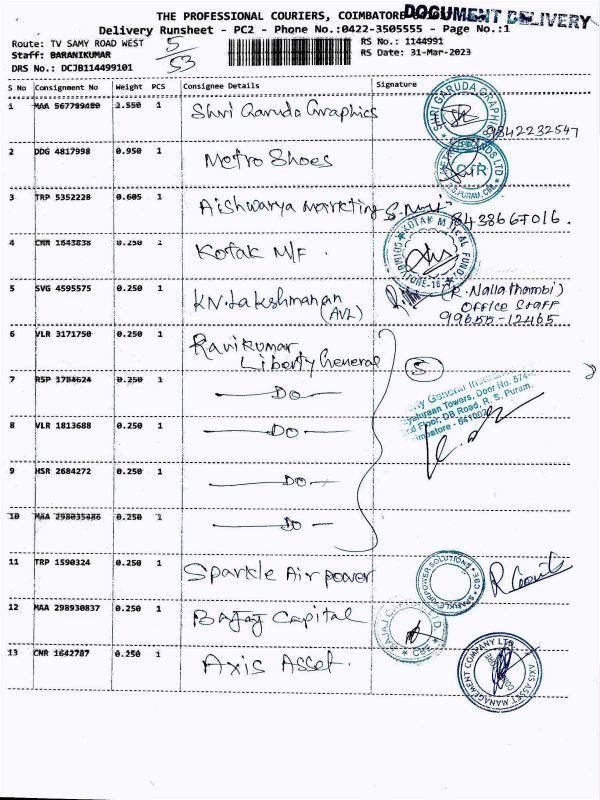 THE PROFESSIONAL COURIERS, COIMBATORE
DOCUMENT DELIVERY
Delivery Runsheet - PC2 - Phone No.:0422-3505555 - Page No.:1
Route: TV SAMY ROAD WEST
Staff: BARANIKUMAR
DRS No.: DCJB114499101
5/53
RS No.: 1144991
RS Date: 31-Mar-2023
S No Consignment No Weight PCS Consignee Details Signature
1 MAA 567789480 2.550 1 Shri Garuda Graphics
SHRI GARUDA GRAPHICS
9842232547
2 DDG 4817998 0.950 1 Metro Shoes
R.S. PURAM, CBE
3 TRP 5352228 0.605 1 Aishwarya Marketing
8438667016.
4 CNR 1643838 0.250 1 Kotak M/F.
KOTAK MUTUAL FUND
COIMBATORE-18
5 SVG 4595575 0.250 1 KN. Lakshmanan
(AVL)
(R. Nallathambi)
Office Staff
99655-12465
6 VLR 3171750 0.250 1 Ravikumar
Liberty General
5
7 RSP 1784624 0.250 1 — DO —
General Insurance
Towers, Door No. 574-
Floor, DB Road, R. S. Puram,
8 VLR 1813688 0.250 1 — DO —
9 HSR 2684272 0.250 1 — DO —
10 MAA 298035486 0.250 1 — DO —
11 TRP 1590324 0.250 1 Sparkle Air power
SPARKLE AIRPOWER SOLUTIONS * CBE
12 MAA 298930837 0.250 1 Bajaj Capital
13 CNR 1642787 0.250 1 Axis Asset.
AXIS ASSET MANAGEMENT COMPANY LTD